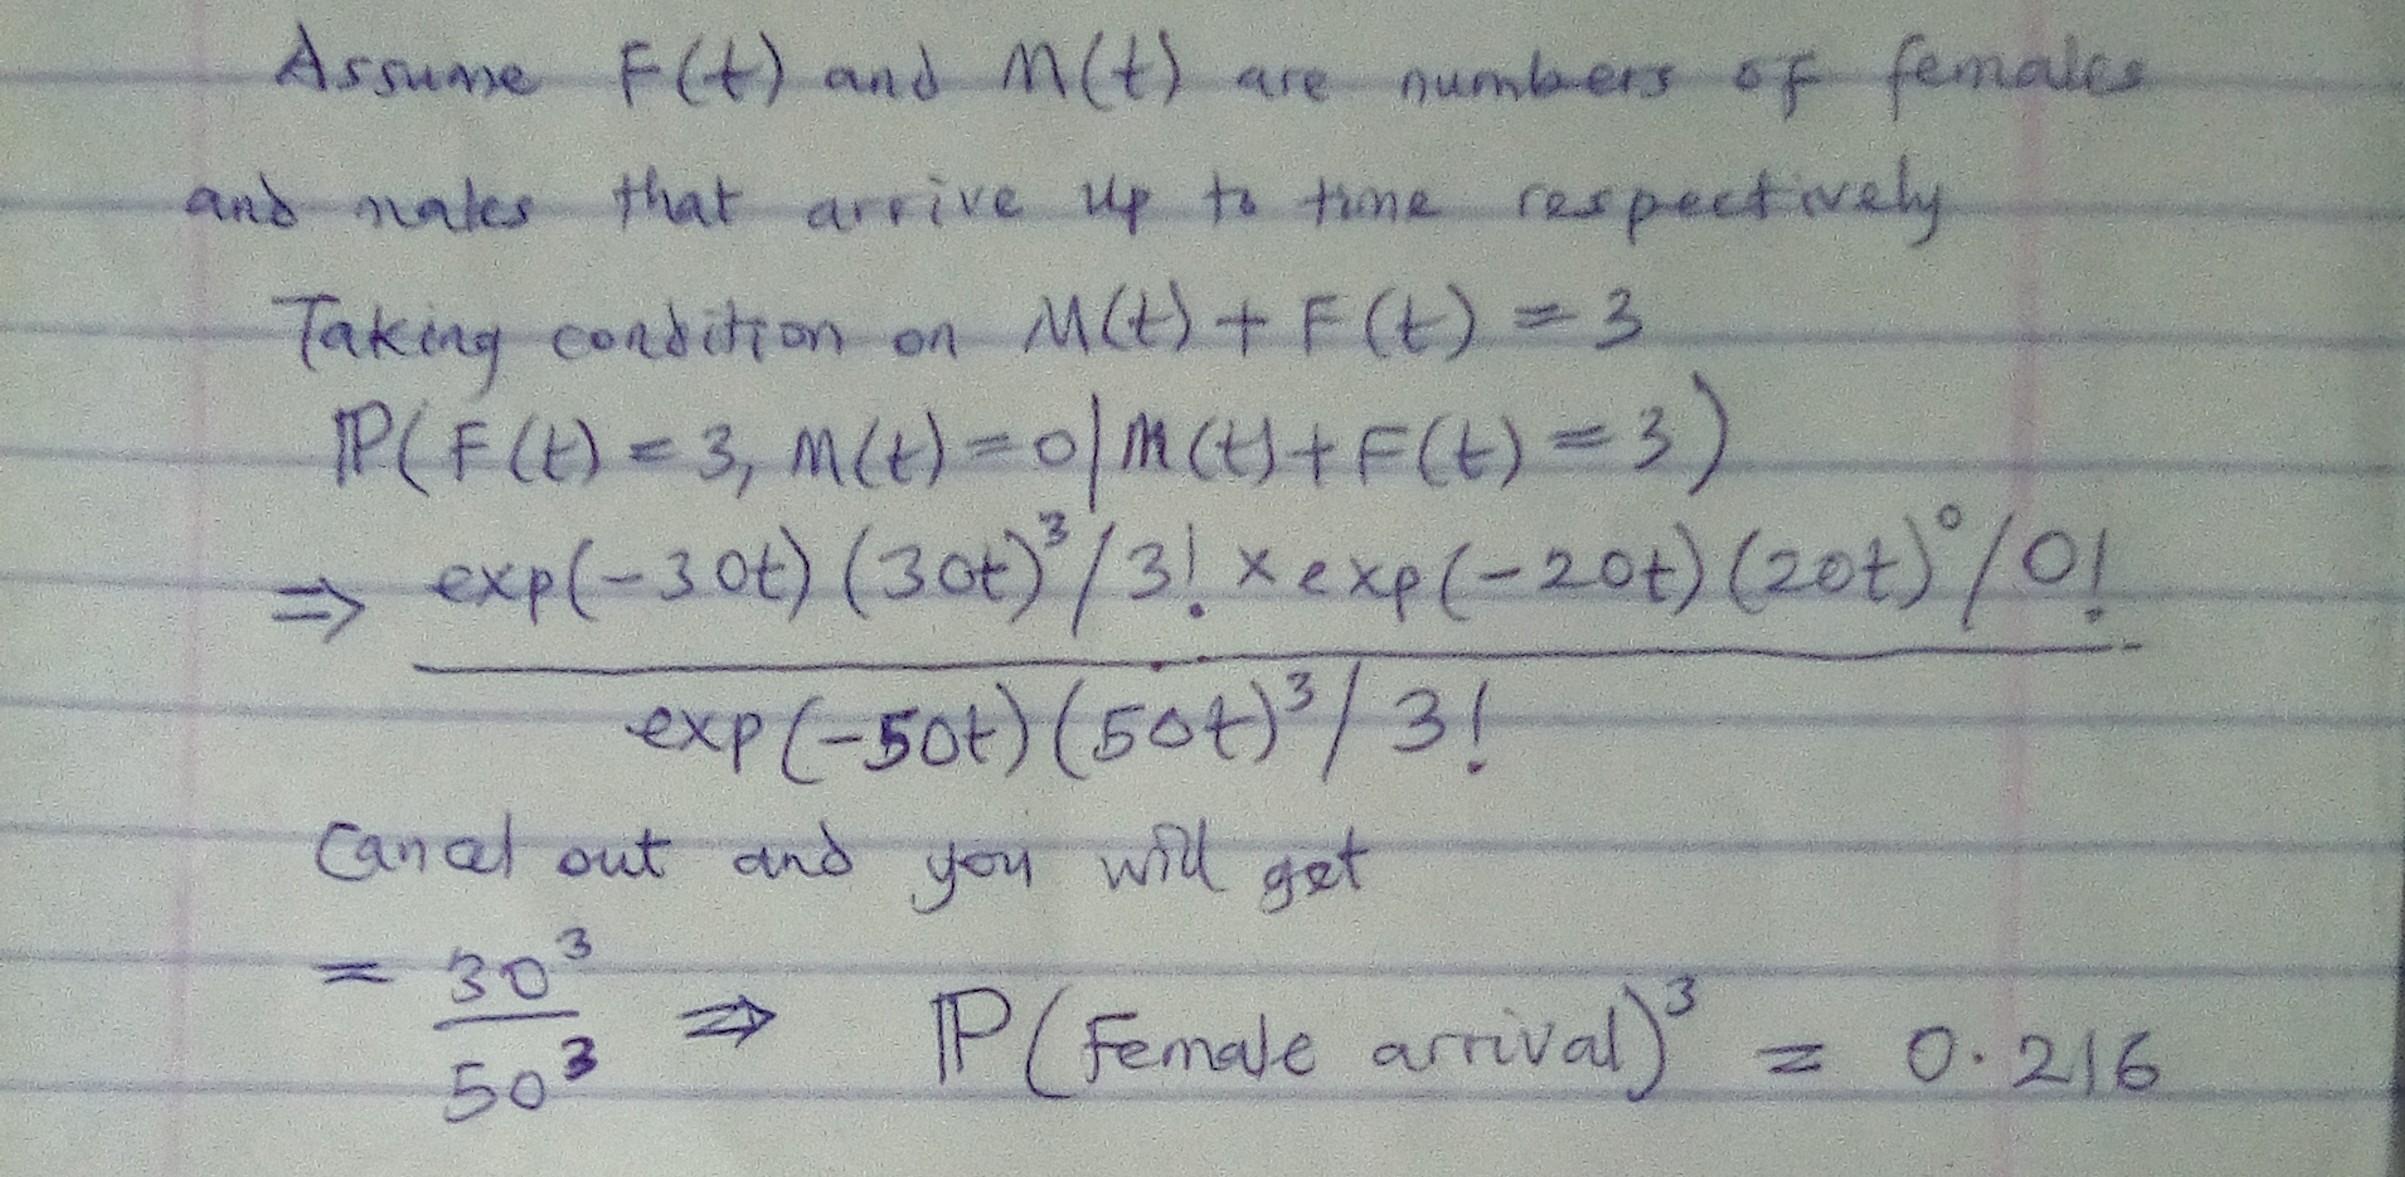 Assume F(t) and M(t) are numbers of females
and males that arrive up to time respectively
Taking condition on M(t) + F(t) = 3
ℙ(F(t) = 3, M(t) = 0 | M(t) + F(t) = 3)
⇒ exp(-30t) (30t)³/3! × exp(-20t) (20t)⁰/0!
exp(-50t) (50t)³/3!
Cancel out and you will get
= 30³/50³ ⇒ ℙ(Female arrival)³ = 0.216